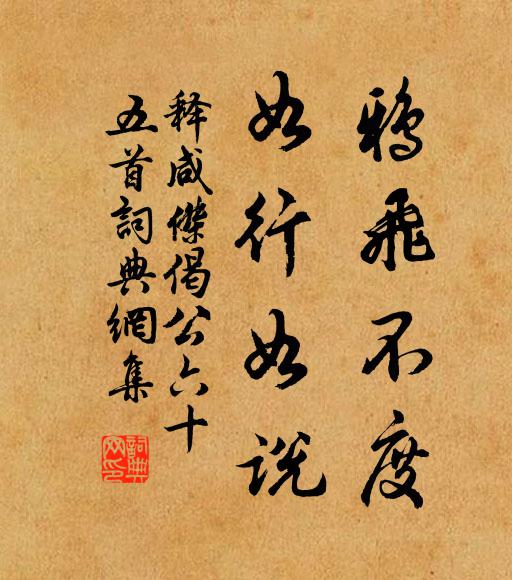 鸦飞不度
如行如说
释咸傑偈公六十
五首詞典網集
詞典網印